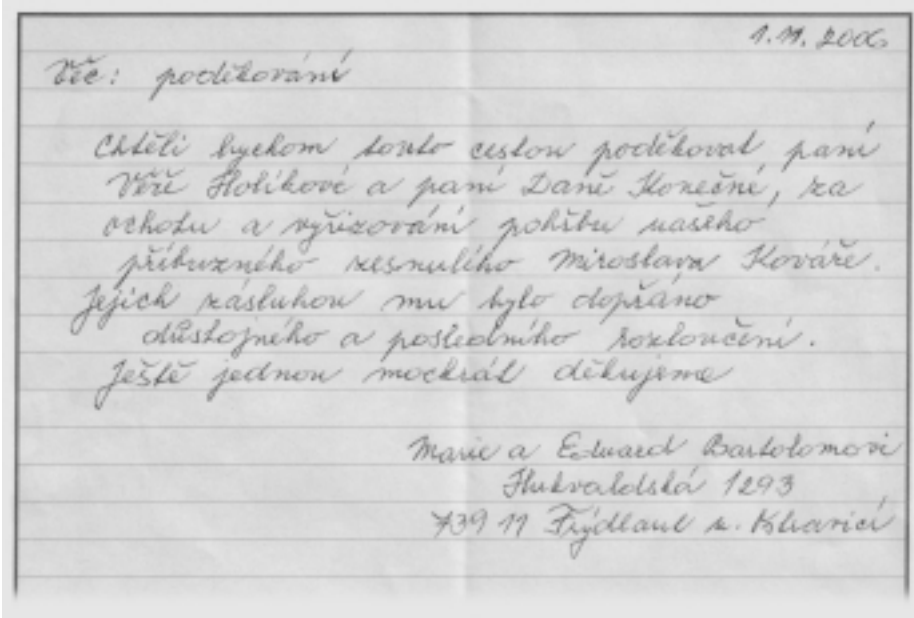 1.11.2006
Věc: poděkování
Chtěli bychom touto cestou poděkovat paní
Věře Holíkové a paní Daně Konečné, za
ochotu a vyřizování pohřbu našeho
příbuzného zesnulého Miroslava Kováře.
Jejich zásluhou mu bylo dopřáno
důstojného a posledního rozloučení.
Ještě jednou mockrát děkujeme
Marie a Eduard Bartolomovi
Hukvaldská 1293
739 11 Frýdlant n. Ostravicí